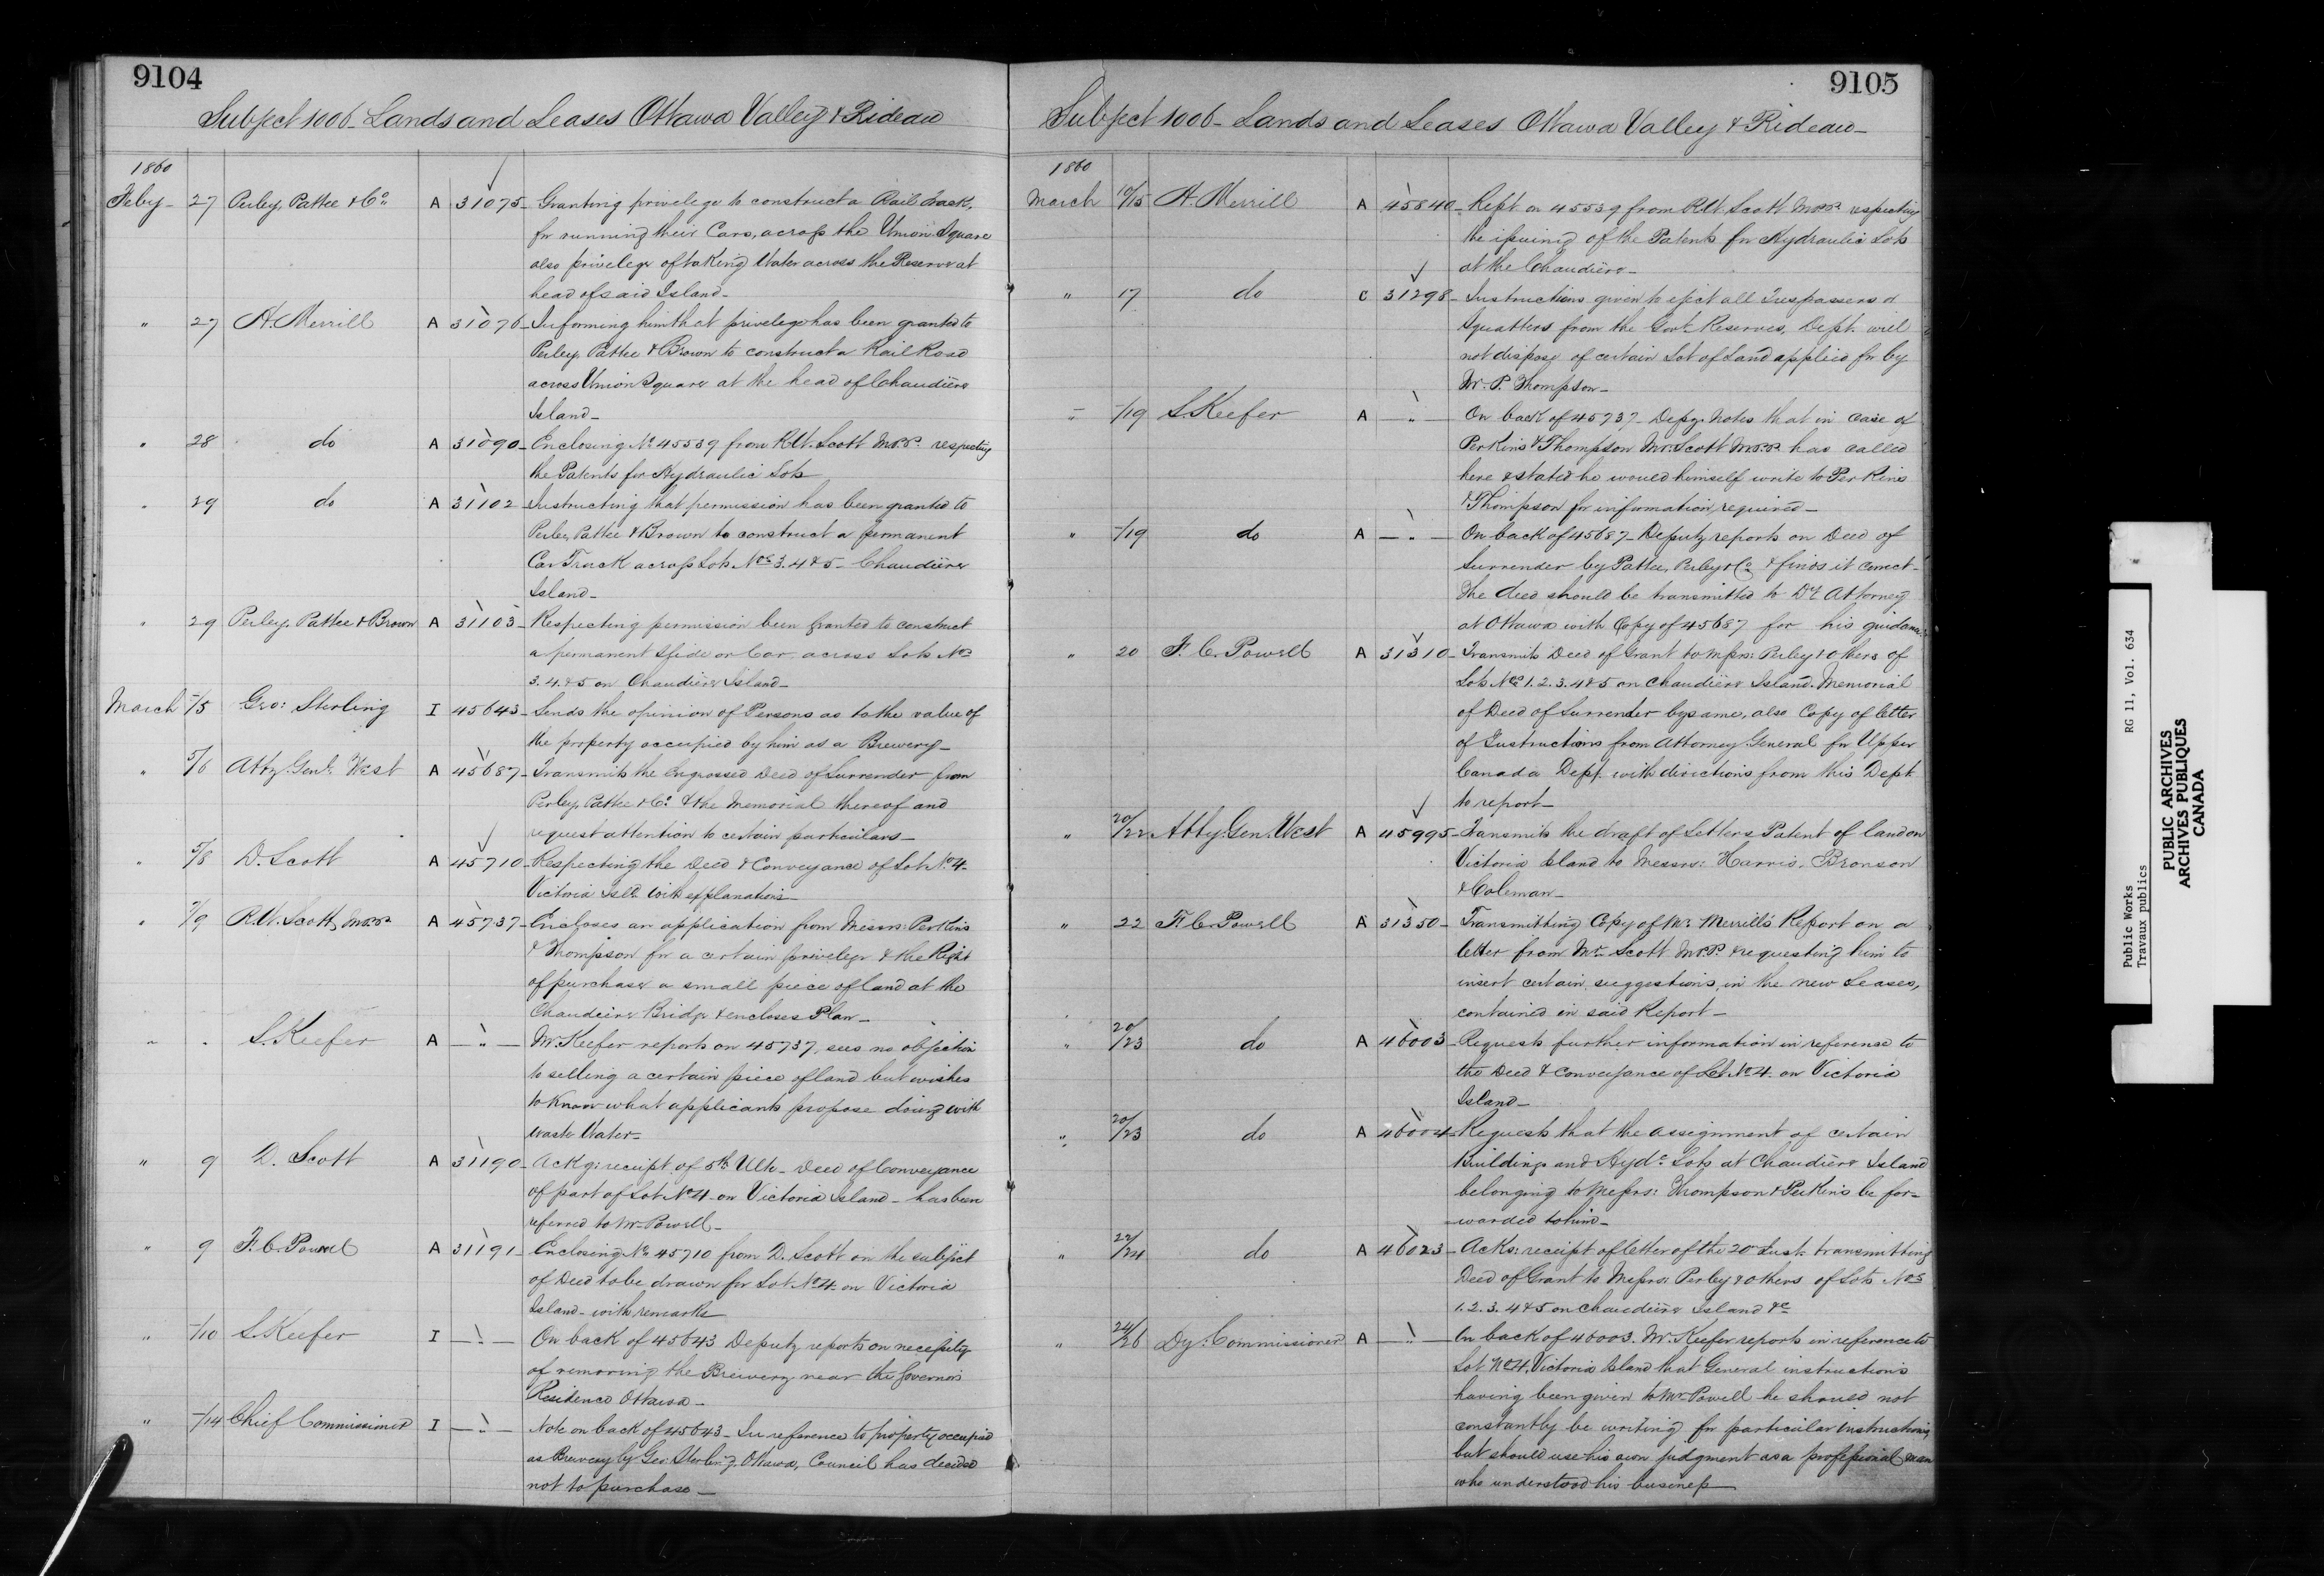 9104
Subject 1006 - Lands and Leases Ottawa Valley & Rideau
1860
Feby - 27 Perley, Pattee & Co. A 31075 - Granting privilege to construct a Rail Track,
for running their Cars, across the Union Square
also privilege of taking Water across the Reserve at
head of said Island -
" 27 A. Merrill A 31076 - Informing him that privilege has been granted to
Perley, Pattee & Brown to construct a Rail Road
across Union Square at the head of Chaudière
Island -
" 28 do A 31090 - Enclosing No. 45539 from R.W. Scott M.P.P. respecting
the Patents for Hydraulic Lots
" 29 do A 31102 - Instructing that permission has been granted to
Perley, Pattee & Brown to construct a permanent
Car Track across Lots Nos 3. 4 & 5 - Chaudière
Island -
" 29 Perley, Pattee & Brown A 31103 - Respecting permission been granted to construct
a permanent Slide or Car across Lots Nos
3. 4. & 5 on Chaudière Island -
March -/5 Geo: Sterling I 45643 - Sends the opinion of Persons as to the value of
the property occupied by him as a Brewery -
" 5/6 Atty. Genl. West A 45687 - Transmits the Engrossed Deed of Surrender from
Perley, Pattee & Co. & the Memorial thereof and
request attention to certain particulars -
" 5/8 D. Scott A 45710 - Respecting the Deed & Conveyance of Lot No. 4
Victoria Isld. with explanations -
" 7/9 R.W. Scott, M.P.P. A 45737 - Encloses an application from Messrs: Perkins
& Thompson for a certain privilege & the Right
of purchase a small piece of land at the
Chaudiere Bridge & encloses Plan -
" " S. Keefer A — " — Mr. Keefer reports on 45737, sees no objection
to selling a certain piece of land but wishes
to know what applicants propose doing with
waste Water -
" 9 D. Scott A 31190 - Ackg: receipt of 5th Ulto - Deed of Conveyance
of part of Lot No. 4 on Victoria Island - has been
referred to Mr. Powell -
" 9 F. C. Powell A 31191 - Enclosing No. 45710 from D. Scott on the subject
of Deed to be drawn for Lot No. 4 on Victoria
Island - with remarks
" -/10 S. Keefer I — " — On back of 45643 Deputy reports on necessity
of removing the Brewery near the Governor's
Residence Ottawa -
" -/14 Chief Commissioner I — " — Note on back of 45643 - In reference to property occupied
as Brewery by Geo: Sterling, Ottawa, Council has decided
not to purchase -
9105
Subject 1006 - Lands and Leases Ottawa Valley & Rideau -
1860
March 10/15 A. Merrill A 45840 - Rept. on 45539 from R.W. Scott M.P.P. respecting
the issuing of the Patents for Hydraulic Lots
at the Chaudière -
" 17 do C 31298 - Instructions given to eject all Trespassers or
Squatters from the Govt. Reserves, Dept. will
not dispose of certain Lot of Land applied for by
Mr. P. Thompson -
" -/19 S. Keefer A — " — On back of 45737 Depy. Notes that in case of
Perkins & Thompson Mr. Scott M.P.P. has called
here & stated he would himself write to Perkins
& Thompson for information required -
" -/19 do A — " — On back of 45687 - Deputy reports on Deed of
Surrender by Pattee, Perley & Co. & finds it correct -
The deed should be transmitted to Dt. Attorney
at Ottawa with Copy of 45687 for his guidance
" 20 F. C. Powell A 31310 - Transmits Deed of Grant to Messrs: Perley & Others of
Lots Nos. 1. 2. 3. 4 & 5 on Chaudière Island. Memorial
of Deed of Surrender by same, also Copy of letter
of Instructions from Attorney General for Upper
Canada Dept. with directions from this Dept
to report -
" 20/22 Atty. Gen. West A 45995 - Transmits the draft of Letters Patent of land on
Victoria Island to Messrs: Harris, Bronson
& Coleman -
" 22 F. C. Powell A 31350 - Transmitting Copy of Mr. Merrill's Report on a
letter from Mr. Scott M.P.P. & requesting him to
insert certain suggestions, in the new Leases,
contained in said Report -
" 20/23 do A 46003 - Requests further information in reference to
the Deed & Conveyance of Lot No. 4 on Victoria
Island -
" 20/23 do A 46004 - Requests that the assignment of certain
Buildings and Hydc. Lots at Chaudière Island
belonging to Messrs: Thompson & Perkins be for-
warded to him -
" 22/24 do A 46023 - Acks: receipt of letter of the 20th Inst. transmitting
Deed of Grant to Messrs: Perley & Others of Lots Nos
1. 2. 3. 4 & 5 on Chaudière Island &c
" 24/26 Dy: Commissioner A — " — On back of 46003. Mr. Keefer reports in reference to
Lot No. 4, Victoria Island that General instructions
having been given to Mr. Powell he should not
constantly be writing for particular instructions,
but should use his own judgment as a professional man
who understood his business
Public Works RG 11, Vol. 634
Travaux publics
PUBLIC ARCHIVES
ARCHIVES PUBLIQUES
CANADA